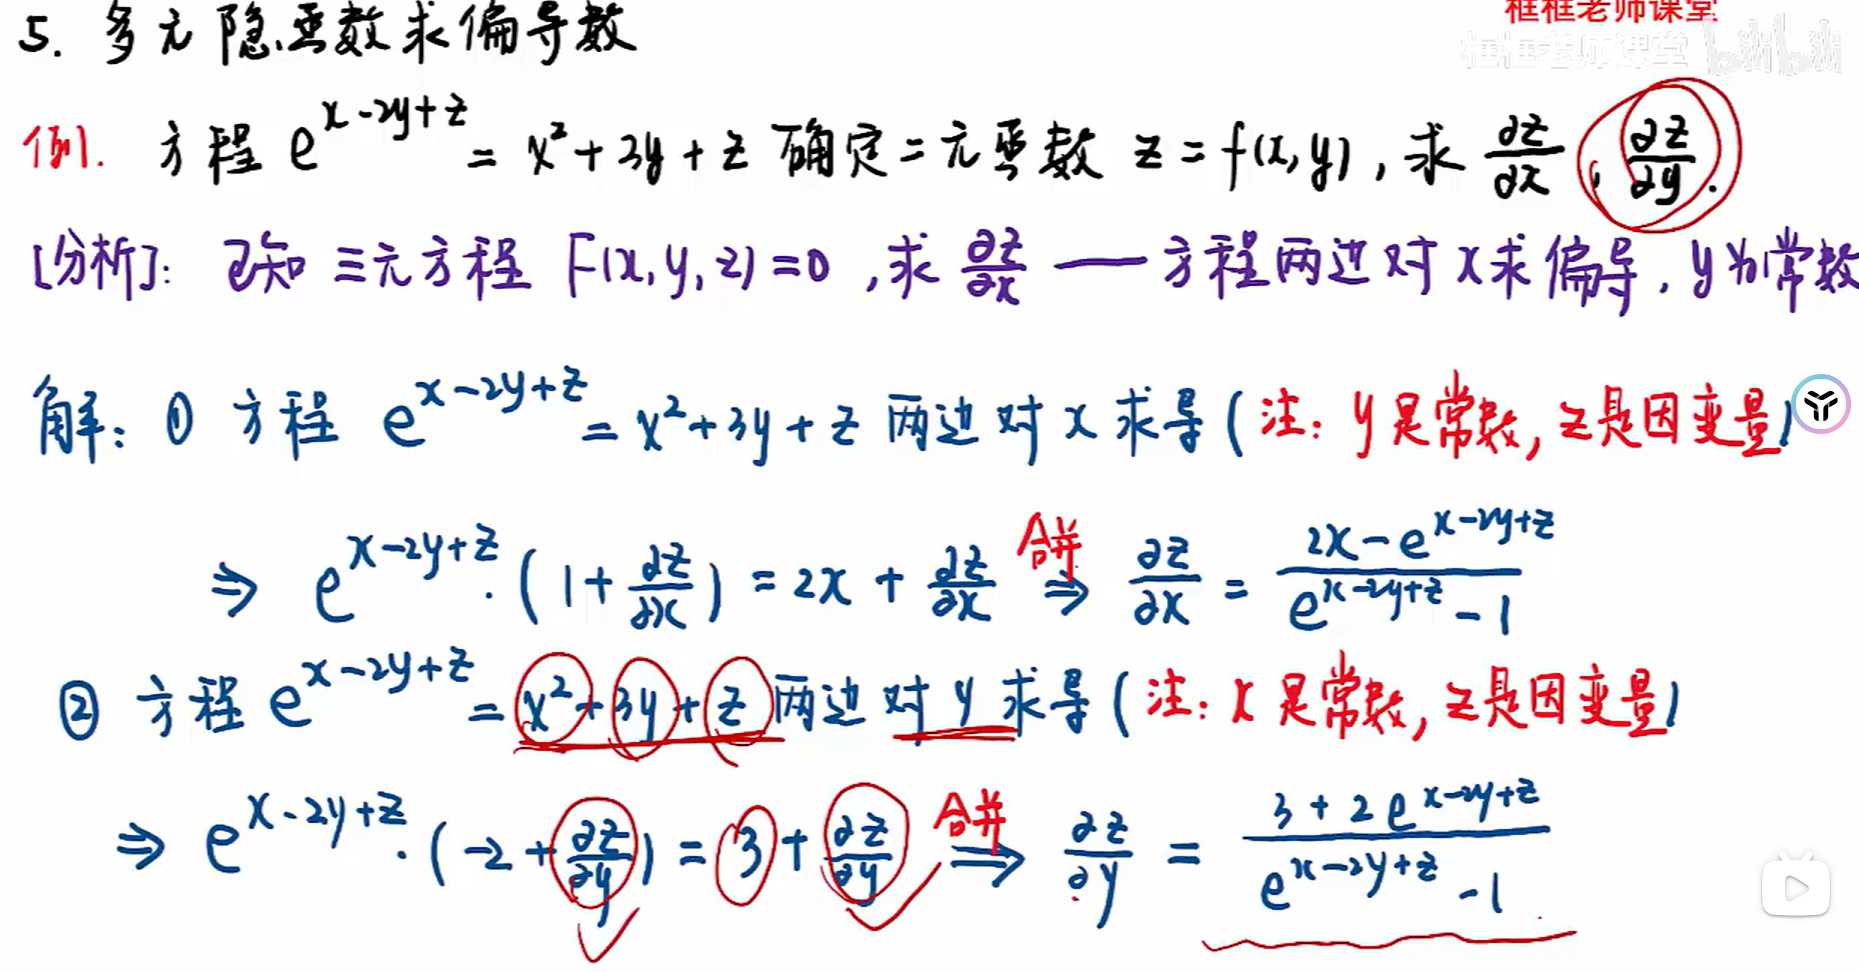 框框老师课堂
框框老师课堂 bilibili
5. 多元隐函数求偏导数
例1. 方程 e^{x-2y+z} = x²+3y+z 确定二元函数 z=f(x,y), 求 ∂z/∂x, ∂z/∂y.
[分析]: 已知三元方程 F(x,y,z)=0, 求 ∂z/∂x — 方程两边对x求偏导, y为常数
解: ① 方程 e^{x-2y+z} = x²+3y+z 两边对x求导 (注: y是常数, z是因变量)
⇒ e^{x-2y+z}·(1+∂z/∂x) = 2x+∂z/∂x 合并 ⇒ ∂z/∂x = (2x-e^{x-2y+z})/(e^{x-2y+z}-1)
② 方程 e^{x-2y+z} = x²+3y+z 两边对y求导 (注: x是常数, z是因变量)
⇒ e^{x-2y+z}·(-2+∂z/∂y) = 3+∂z/∂y 合并 ⇒ ∂z/∂y = (3+2e^{x-2y+z})/(e^{x-2y+z}-1)